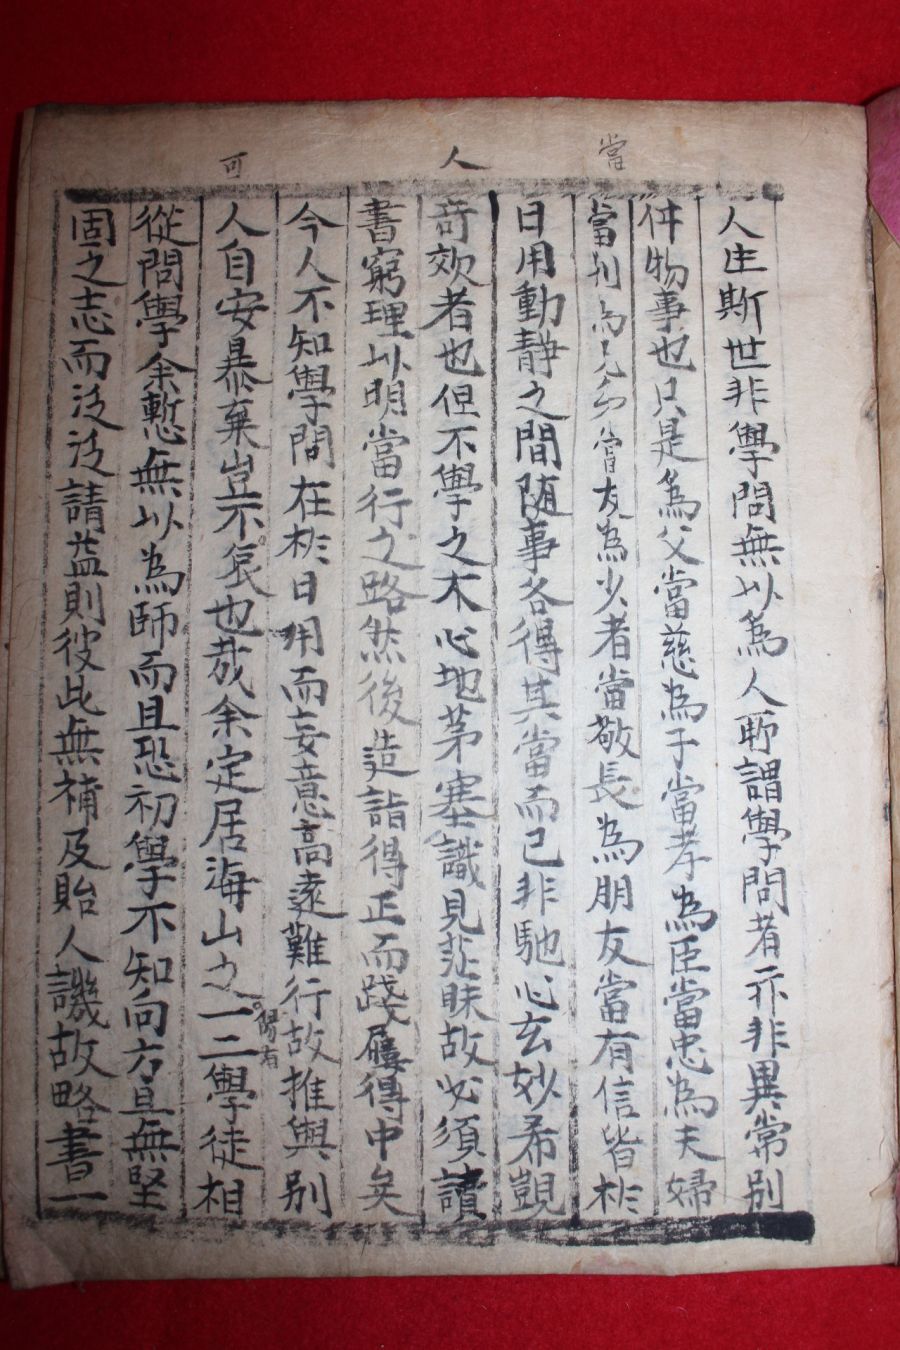 當
人
可
人生斯世非學問無以為人所謂學問者亦非異常別
件物事也只是為父當慈為子當孝為臣當忠為夫婦
當別為兄弟當友為少者當敬長為朋友當有信皆於
日用動靜之間随事各得其當而已非馳心玄妙希覬
竒效者也但不學之木心地茅塞識見茫昧故必須讀
書窮理以明當行之路然後造詣得正而踐履得中矣
今人不知學問在於日用而妄意高遠難行故推與別
人自安暴棄豈不哀也哉余定居海山之陽有一二學徒相
從問學余慙無以為師而且恐初學不知向方且無堅
固之志而泛泛請益則彼此無補及貽人譏故略書一